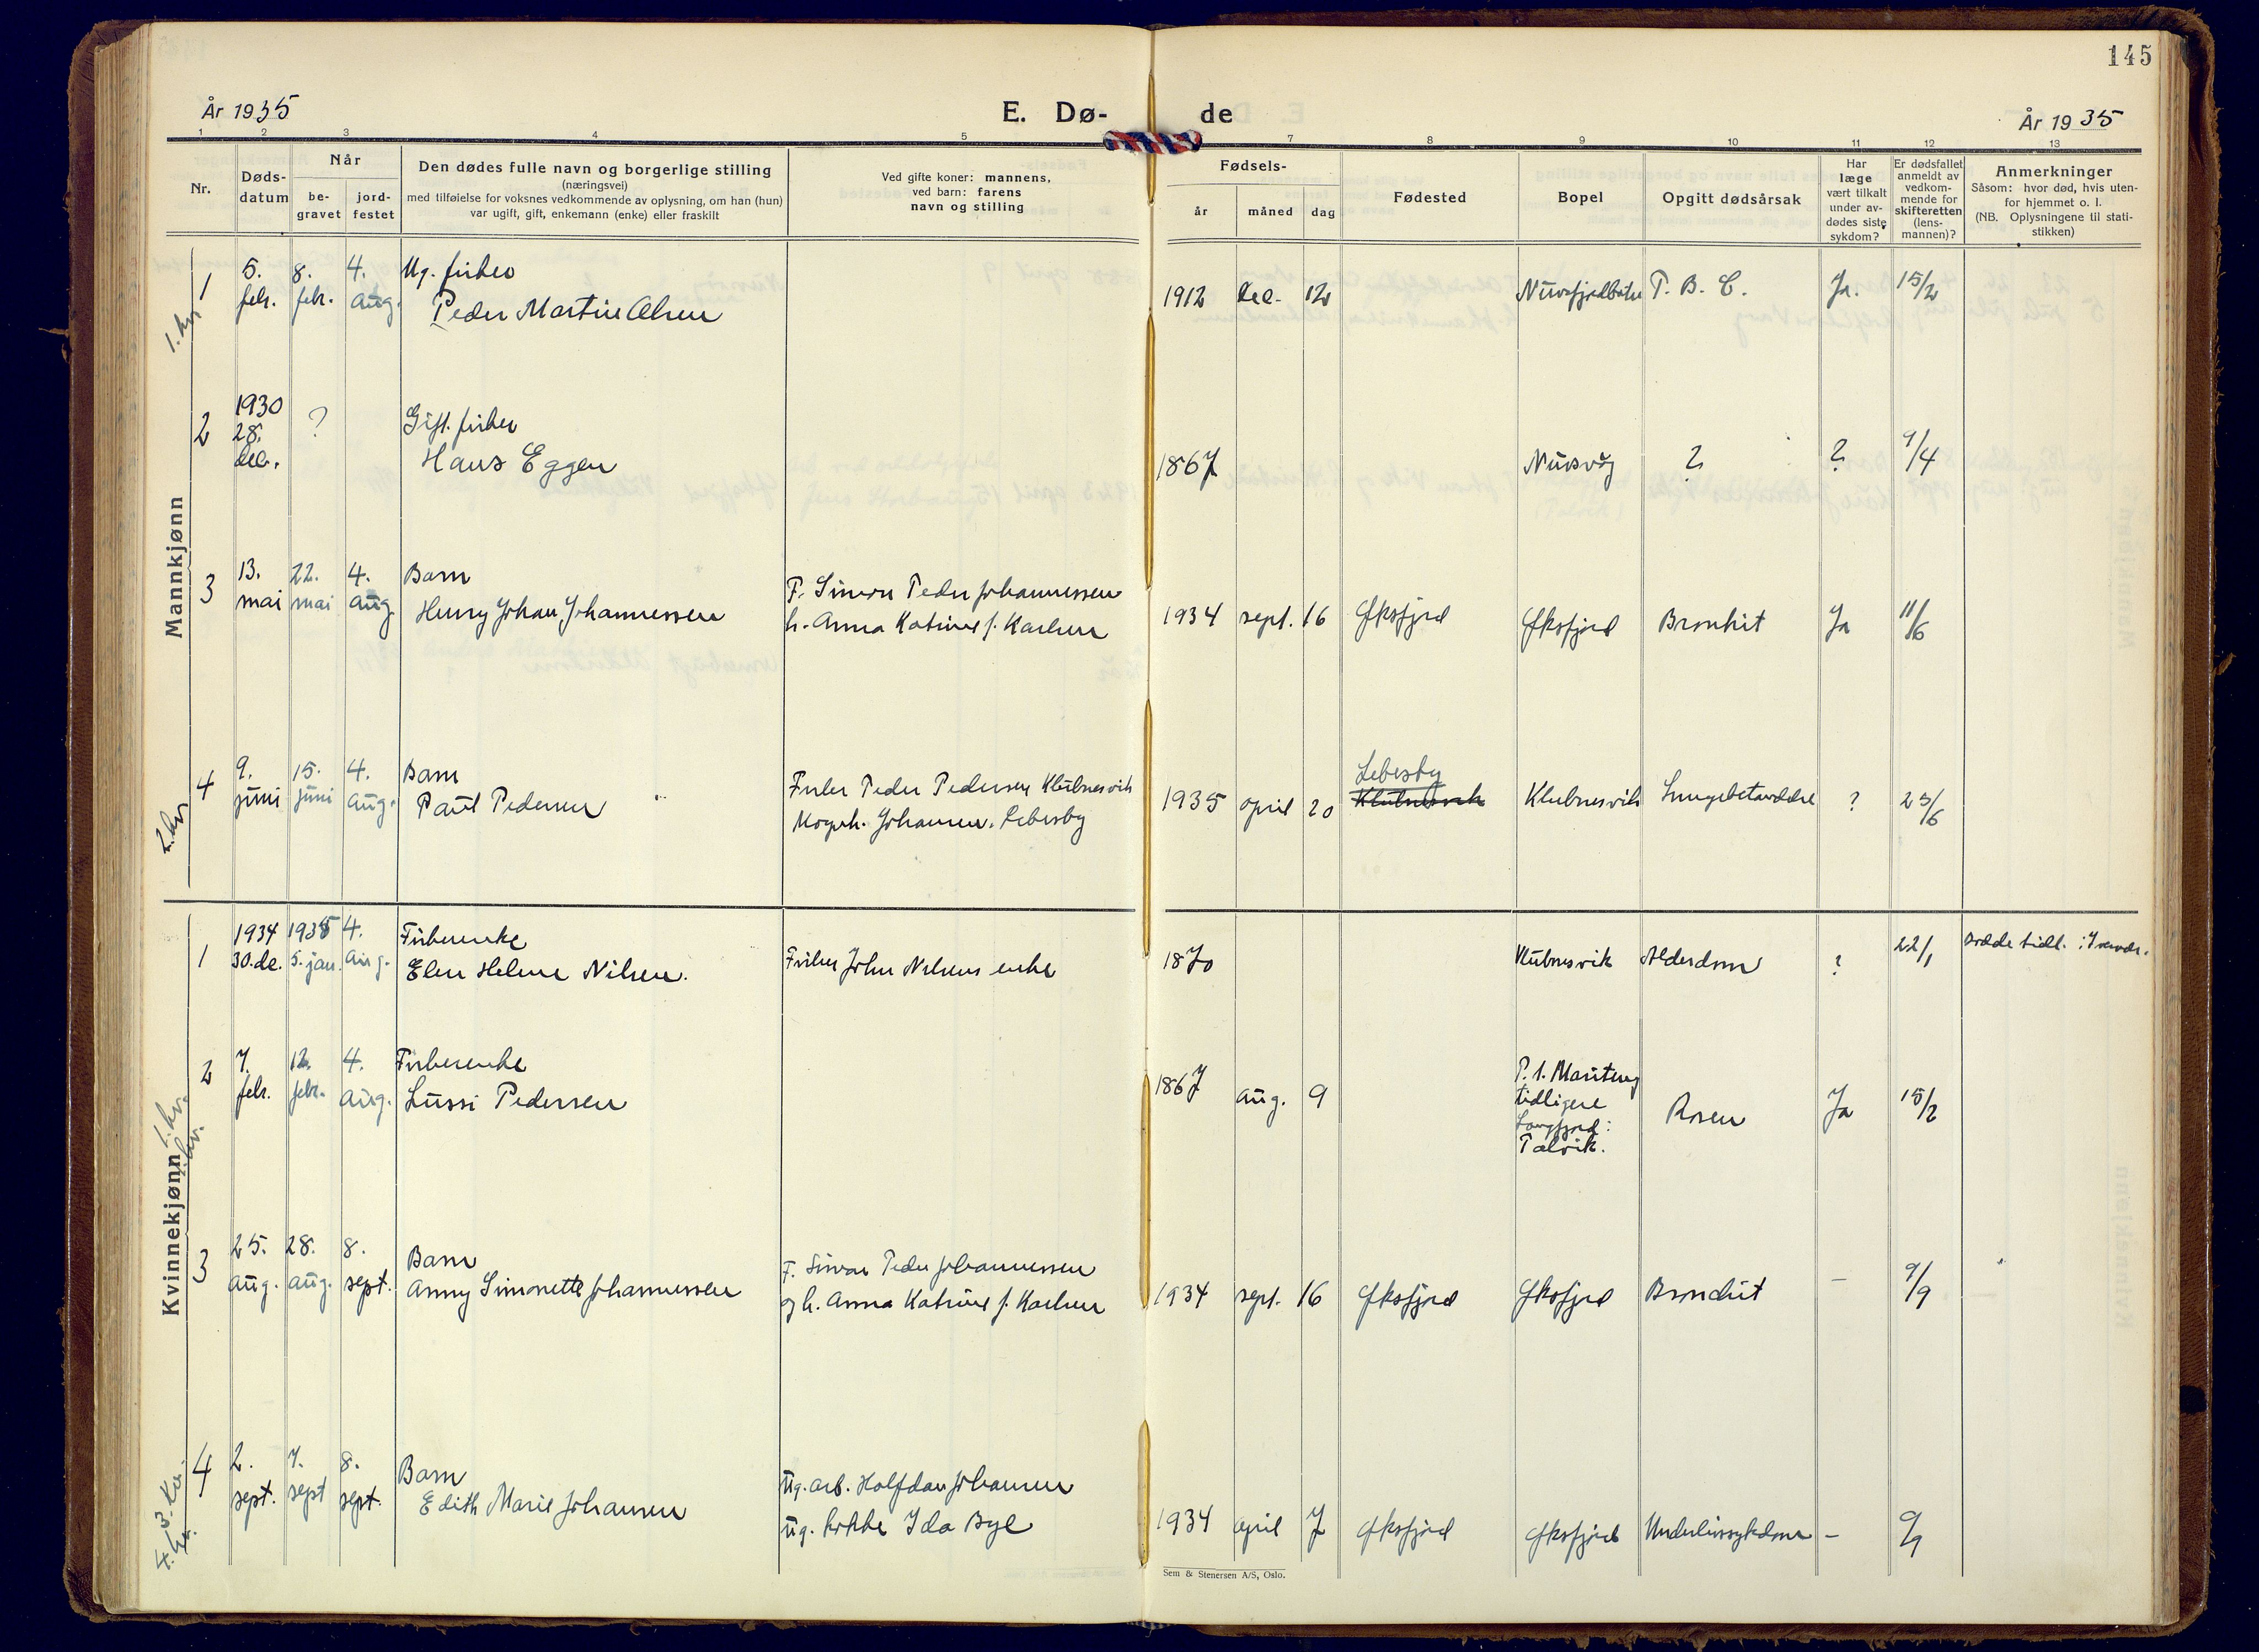 145
År 1935
E. Dø-
de
År 1935
1 2 3 4 5 7 8 9 10 11 12 13
Nr.
Døds-
datum
Når
be-
gravet
jord-
festet
Den dødes fulle navn og borgerlige stilling
(næringsvei)
med tilføielse for voksnes vedkommende av oplysning, om han (hun)
var ugift, gift, enkemann (enke) eller fraskilt
Ved gifte koner: mannens,
ved barn: farens
navn og stilling
Fødsels-
år
måned
dag
Fødested
Bopel
Opgitt dødsårsak
Har
læge
vært tilkalt
under av-
dødes siste
sykdom?
Er dødsfallet
anmeldt av
vedkom-
mende for
skifteretten
(lens-
mannen)?
Anmerkninger
Såsom: hvor død, hvis uten-
for hjemmet o. l.
(NB. Oplysningene til stati-
stikken)
Mannkjønn
1. kv.
1
5.
febr.
8.
febr.
4.
aug.
Ug. fisker
Peder Martin Olsen
1912 dec. 12
Nuvsfjordbotn
T. B. C.
Ja.
15/2
2
1930
28.
dec.
?
Gift. fisker
Hans Eggen
1867
Nuvsvåg
?
?
9/4
3
13.
mai
22.
mai
4.
aug.
Barn
Henry Johan Johannessen
F. Simon Peder Johannessen
h. Anna Katrine f. Karlsen
1934 sept. 16
Øksfjord
Øksfjord
Bronkit
Ja
11/6
2. kv.
4
9.
juni
15.
juni
4.
aug.
Barn
Paul Pedersen
Fisker Peder Pedersen Klubnesvik
Johansen. Lebesby
1935 april 20
Lebesby
Klubnesvik
Klubnesvik
Lungebetændelse
?
25/6
Kvinnekjønn
1
1934
30. de.
1935
5. jan.
4.
aug.
Fiskerenke
Elen Helene Nilsen.
Fisker John Nilsens enke
1870
Klubnesvik
Alderdom
?
22/1
tidl.
1. kv.
2
7.
febr.
12.
febr.
4.
aug.
Fiskerenke
Lussi Pedersen
1867 aug. 9
P. t.
tidligere
Langfjord:
Talvik.
Rosen
Ja
15/2
3
25.
aug.
28.
aug.
8.
sept.
Barn
Anny Simonette Johannessen
F. Simon Peder Johannessen
og h. Anna Katrine f. Karlsen
1934 sept. 16
Øksfjord
Øksfjord
Bronchit
–
9/9
3. kv.
4. kv.
4
2.
sept.
7.
sept
8.
sept.
Barn
Edith Marie Johansen
Ug. arb. Halfdan Johansen
ug. kokke Ida Bye
1934 april 7
Øksfjord
Øksfjord
Underlivssykdom
–
9/9
Sem & Stenersen A/S, Oslo.